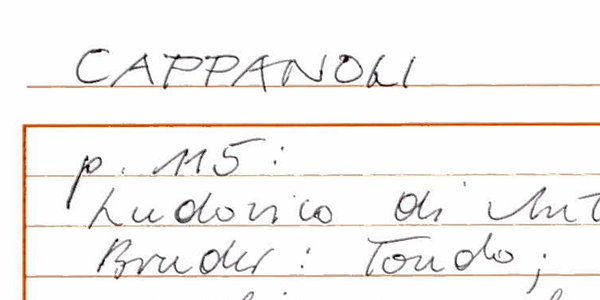 CAPPANOLI
p. 115:
Ludovico di
Bruder: Tondo;